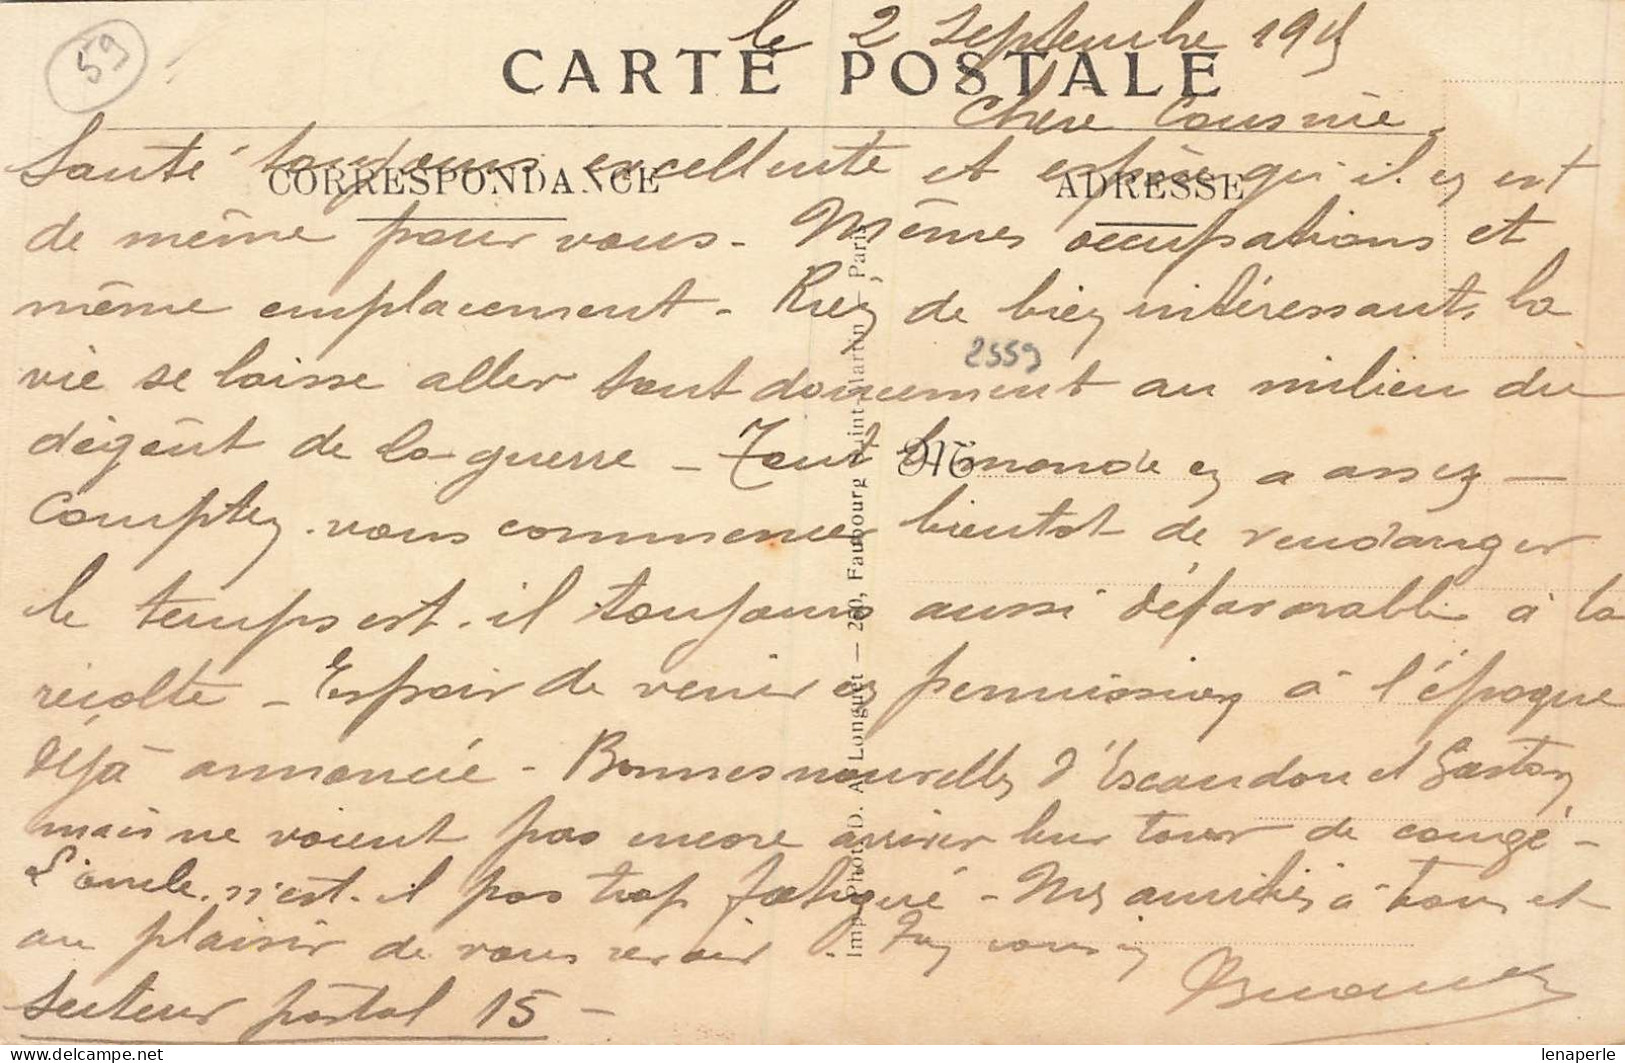 59
le 2 Septembre 1915
CARTE POSTALE
Chère Cousine,
CORRESPONDANCE
ADRESSE
Santé toujours excellente et espère qu'il en est
de même pour vous - Mêmes occupations et
même emplacement - Rien de bien intéressant, la
2559
vie se laisse aller tout doucement au milieu du
dégoût de la guerre - Tout le monde en a assez -
M
Comptez-vous commencer bientot de vendanger
le temps est-il toujours aussi défavorable à la
récolte - Espoir de venir en permission à l'époque
déjà annoncée - Bonnes nouvelles d'Escandou et Gaston
mais ne voient pas encore arriver leur tour de congé -
L'oncle n'est-il pas trop fatigué - Mes amitiés à tous et
au plaisir de vous revoir Ton cousin
Secteur postal 15 -
Imp. Phot. D. A. Longuet — 250, Faubourg Saint-Martin - Paris
lenaperle